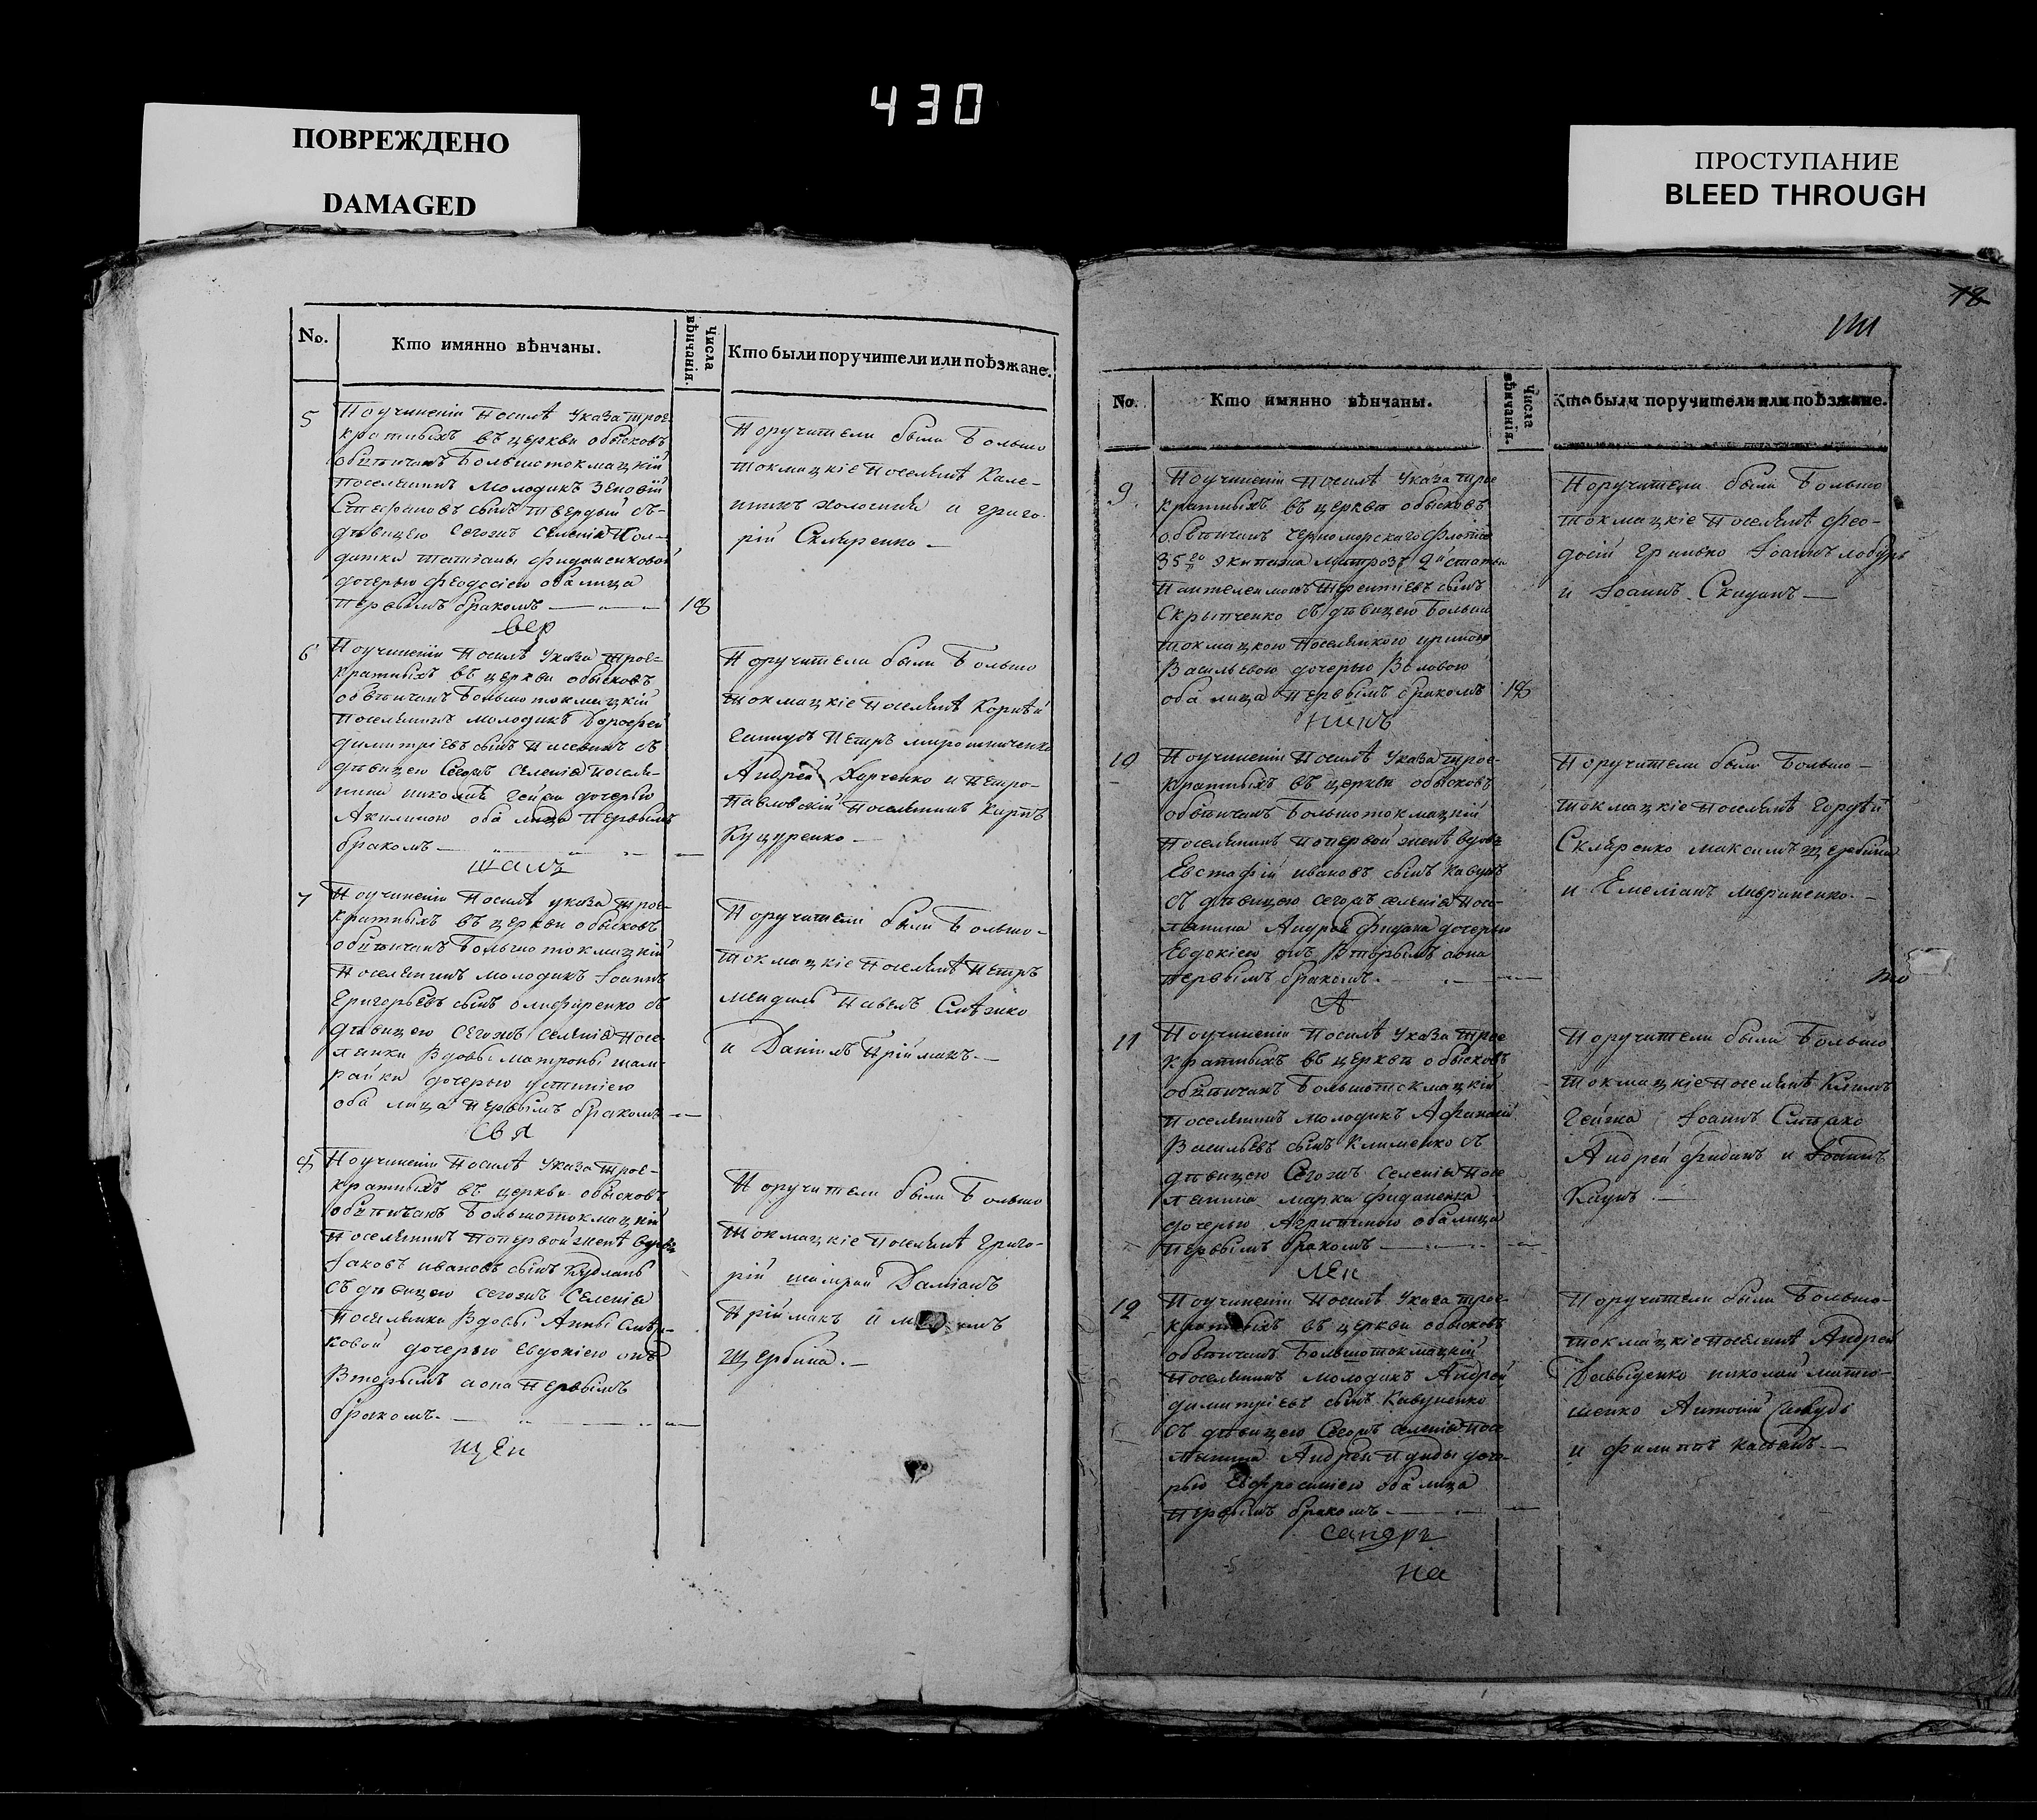 430
ПОВРЕЖДЕНО
DAMAGED
ПРОСТУПАНИЕ
BLEED THROUGH
No.
Кто имянно вѣнчаны.
Числа вѣнчанія.
Кто были поручители или поѣзжане.
5
По учиненіи посилѣ указа трое-
кратныхъ въ церкви обысковъ
обвѣнчанъ Большотокмацкій
поселянинъ молодикъ Зеновій
Стефановъ сынъ Твердый съ
дѣвицею сегожъ селенія
Татіаны
дочерью Феодосіею оба лица
первымъ бракомъ
18
Поручители были Большо
токмацкіе поселянѣ Кале-
никъ и Григо-
рій Скляренко
вер
6
По учиненіи посилѣ указа трое-
кратныхъ въ церкви обысковъ
обвѣнчанъ Большотокмацкій
поселянинъ молодикъ Дорофей
Димитріевъ сынъ съ
дѣвицею сегожъ селенія поселя-
нина дочерью
Акилиною оба лица первымъ
бракомъ
Поручители были Большо
токмацкіе поселянѣ Корнѣй
Петръ Мирошниченко
Андрей Харченко и Петро-
павловскій поселянинъ Карпъ
Куцуренко
шалъ
7
По учиненіи посилѣ указа трое-
кратныхъ въ церкви обысковъ
обвѣнчанъ Большотокмацкій
поселянинъ молодикъ Іоаннъ
Григорьевъ сынъ Олифиренко съ
дѣвицею сегожъ селенія посе-
лянки вдовы Матроны Шам-
райки дочерью Устиніею
оба лица первымъ бракомъ
Поручители были Большо-
токмацкіе поселянѣ Петръ
Павелъ
и Даніилъ Пріймакъ
свя
8
По учиненіи посилѣ указа трое-
кратныхъ въ церкви обысковъ
обвѣнчанъ Большотокмацкій
поселянинъ попервой женѣ вдовъ
Іаковъ Ивановъ сынъ
съ дѣвицею сегожъ селенія
поселянки вдовы Анны
ковой дочерью Евдокіею онъ
вторымъ аона первымъ
бракомъ.
Поручители были Большо
токмацкіе поселянѣ Григо-
рій Даміанъ
Пріймакъ и
Щербина.
щен
18
No.
Кто имянно вѣнчаны.
Числа вѣнчанія.
Кто были поручители или поѣзжане.
9
По учиненіи посилѣ указа трое
кратныхъ въ церкви обысковъ
обвѣнчанъ Черноморскаго флота
35го экипажа матрозъ 2й статьи
Пантелеимонъ Терентіевъ сынъ
Скрыпченко съ дѣвицею Большо
токмацкою поселянкою
Васильевою дочерью Воловою
оба лица первымъ бракомъ
18
Поручители были Большо
токмацкіе поселянѣ Фео-
досій Гринько Іоаннъ
и Іоаннъ Скиданъ
никъ
10
По учиненіи посилѣ указа трое-
кратныхъ въ церкви обысковъ
обвѣнчанъ Большотокмацкій
поселянинъ попервой женѣ вдовъ
Евстафій Ивановъ сынъ Кавунъ
съ дѣвицею сегожъ селенія посе-
лянина Андрея дочерью
Евдокіею онъ вторымъ аона
первымъ бракомъ.
Поручители были Большо-
токмацкіе поселянѣ Гордѣй
Скляренко Максимъ Щербина
и Емеліанъ Лавриненко.
то
А
11
По учиненіи посилѣ указа трое
кратныхъ въ церкви обысковъ
обвѣнчанъ Большотокмацкій
поселянинъ молодикъ Афанасій
Васильевъ сынъ Клименко съ
дѣвицею сегожъ селенія посе
лянина Марка
дочерью Агрипиною оба лица
первымъ бракомъ
Поручители были Большо
токмацкіе поселянѣ Климъ
Іоаннъ
Андрей и Іоаннъ
лек
12
По учиненіи посилѣ указа трое-
кратныхъ въ церкви обысковъ
обвѣнчанъ Большотокмацкій
поселянинъ молодикъ Андрей
Димитріевъ сынъ Кавуненко
съ дѣвицею сегожъ селенія посе
лянина Андрея доче-
рью Евфросиніею оба лица
первымъ бракомъ
Поручители были Большо-
токмацкіе поселянѣ Андрей
Давыденко Николай Матю-
шенко Антоній
и Филиппъ
сандръ
на